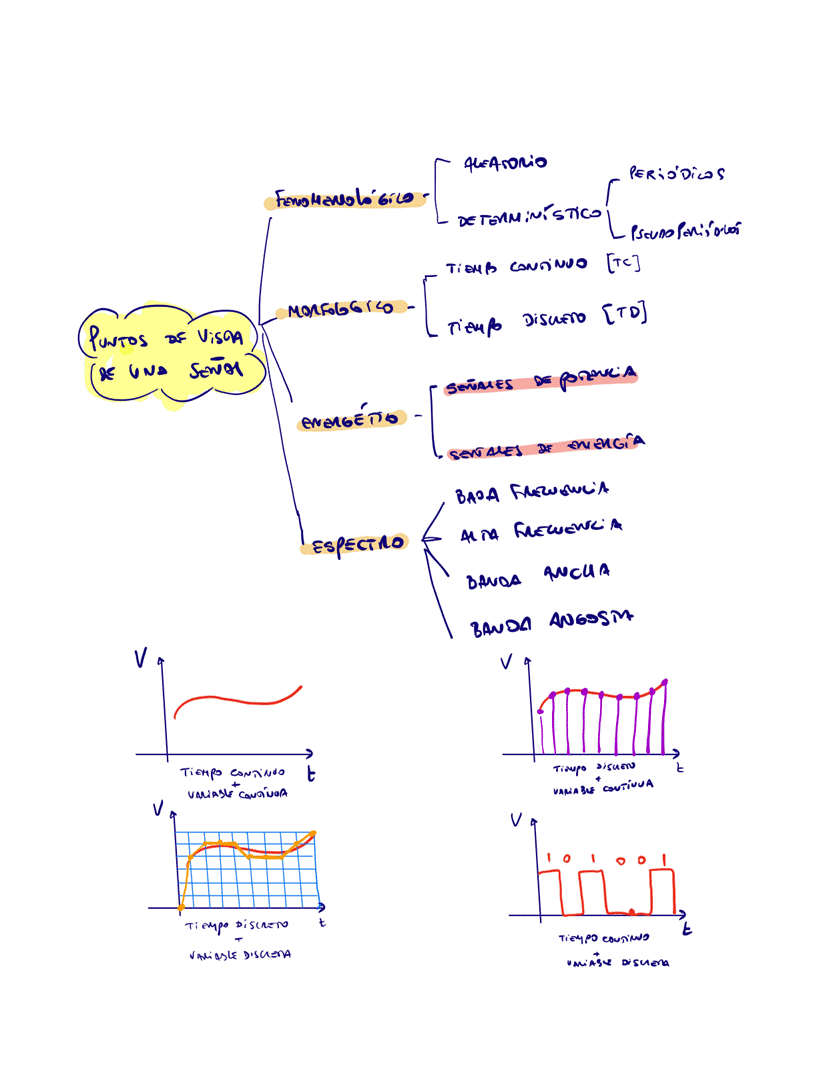 ALEATORIO
PERIÓDICOS
FENOMENOLÓGICO
DETERMINÍSTICO
PSEUDOPERIÓDICOS
TIEMPO CONTINUO [TC]
MORFOLÓGICO
TIEMPO DISCRETO [TD]
PUNTOS DE VISTA
DE UNA SEÑAL
SEÑALES DE POTENCIA
ENERGÉTICO
SEÑALES DE ENERGÍA
BAJA FRECUENCIA
ALTA FRECUENCIA
ESPECTRO
BANDA ANCHA
BANDA ANGOSTA
V
t
TIEMPO CONTINUO
+
VARIABLE CONTÍNUA
V
t
TIEMPO DISCRETO
+
VARIABLE CONTÍNUA
V
t
TIEMPO DISCRETO
+
VARIABLE DISCRETA
V
1 0 1 0 0 1
t
TIEMPO CONTINUO
+
VARIABLE DISCRETA